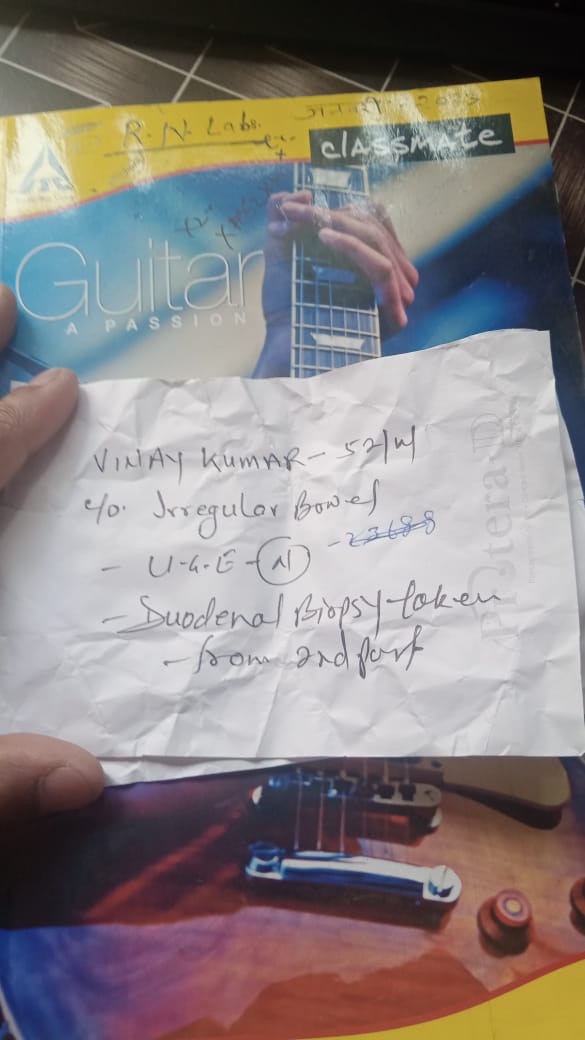 R.N. Labs.
classmate
ITC
Guitar
A PASSION
VINAY KUMAR - 52/M
c/o. Irregular Bowel
- U.G.E - N - 23688
- Duodenal Biopsy taken
- from 2nd part